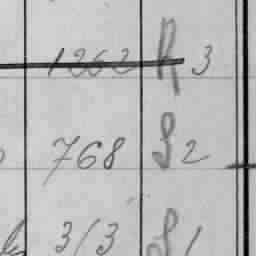 1262 R 3
768 S 2
313 S 1